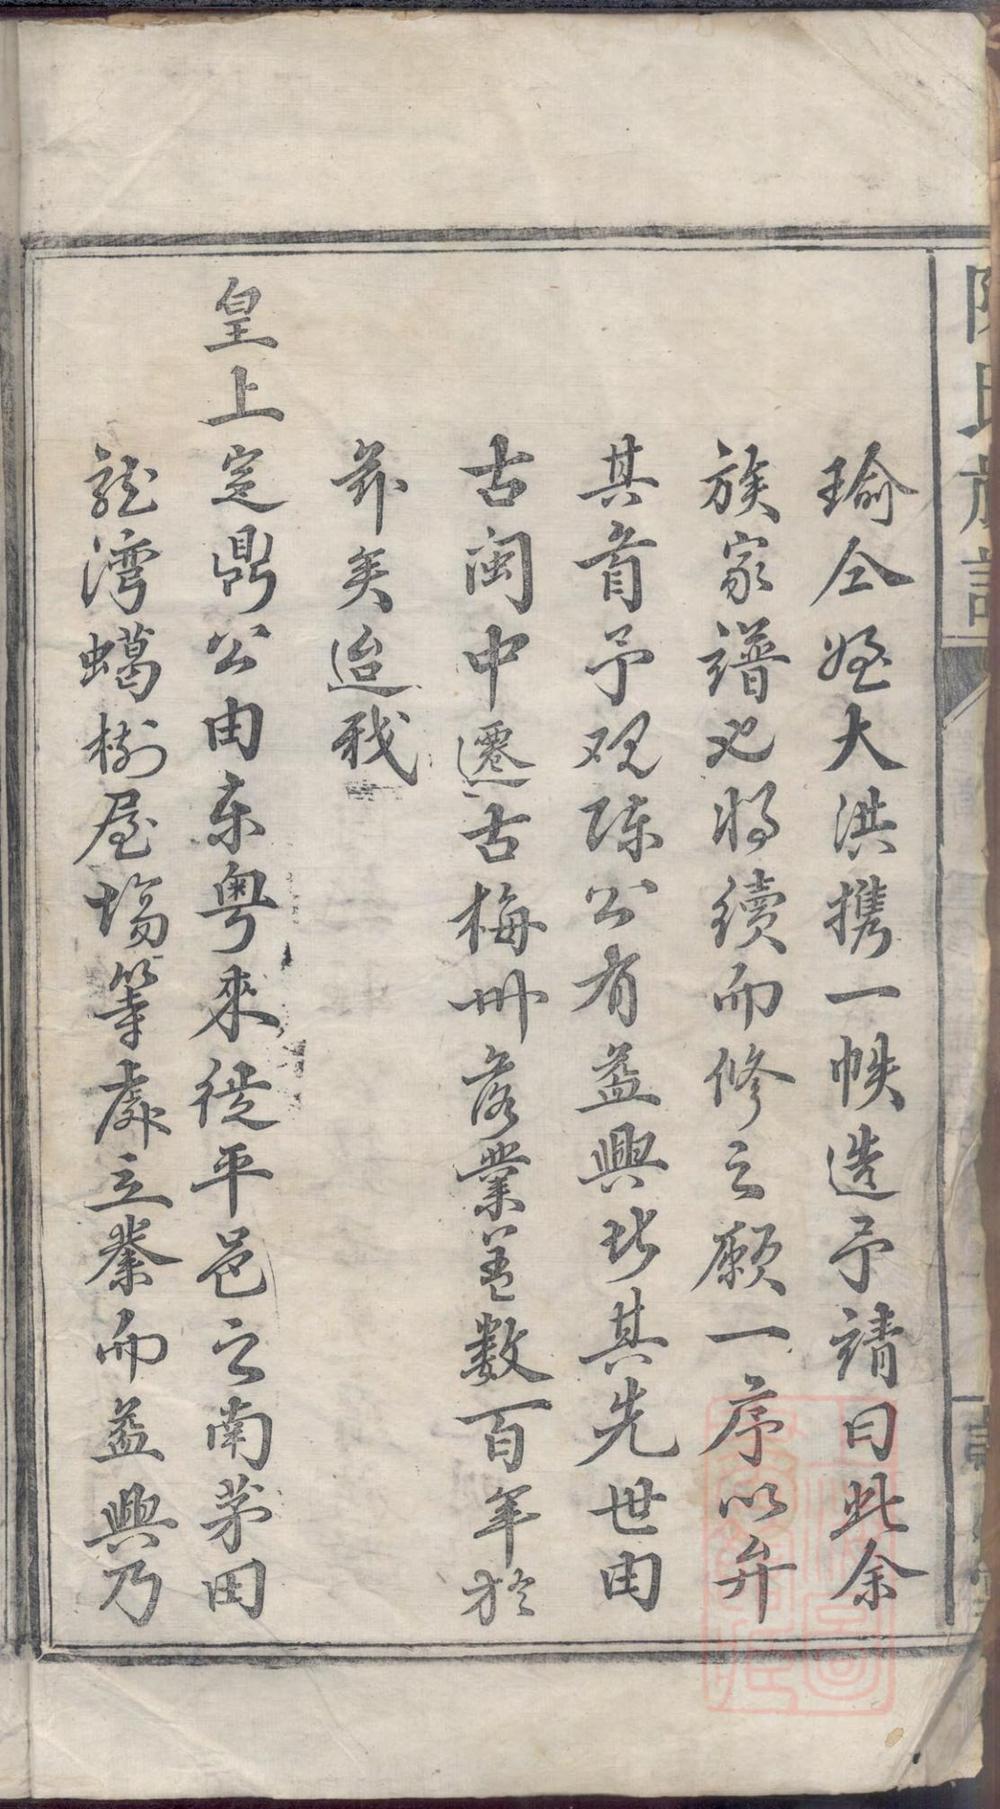 陳氏族譜
瑜仝姪大洪携一帙造予請曰此余
族家譜也将續而修之願一序以弁
其首予观陈公有益興者其先世由
古闽中遷古梅州落業盖数百年於
茲矣迨我
皇上定鼎公由东粤來徙平邑之南茅田
龍湾蝎樹屋塲等處立業而益興乃